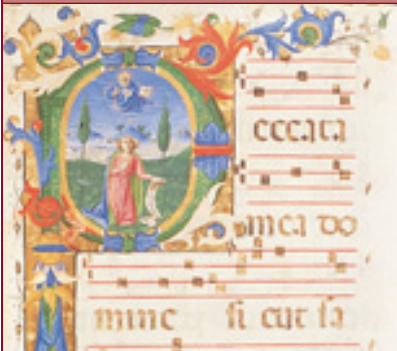 cccata
mea do
mine si cut sa